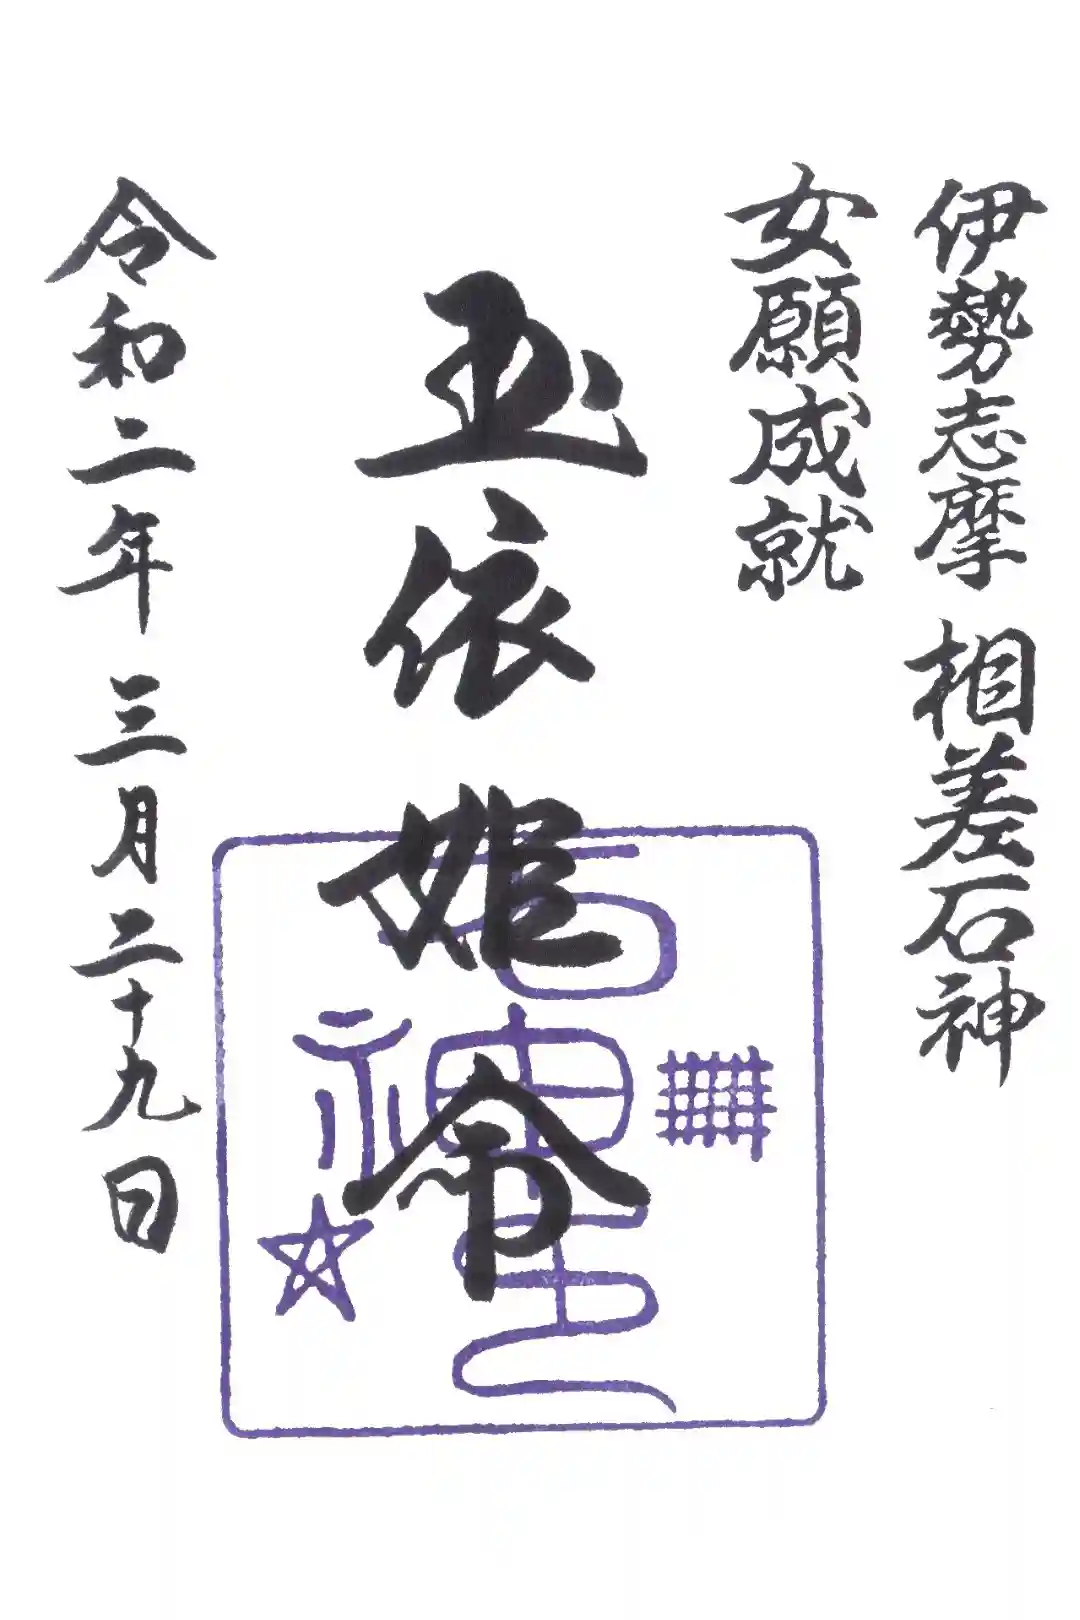 伊勢志摩 相差石神
女願成就
玉依姫命
石神
令和二年 三月二十九日